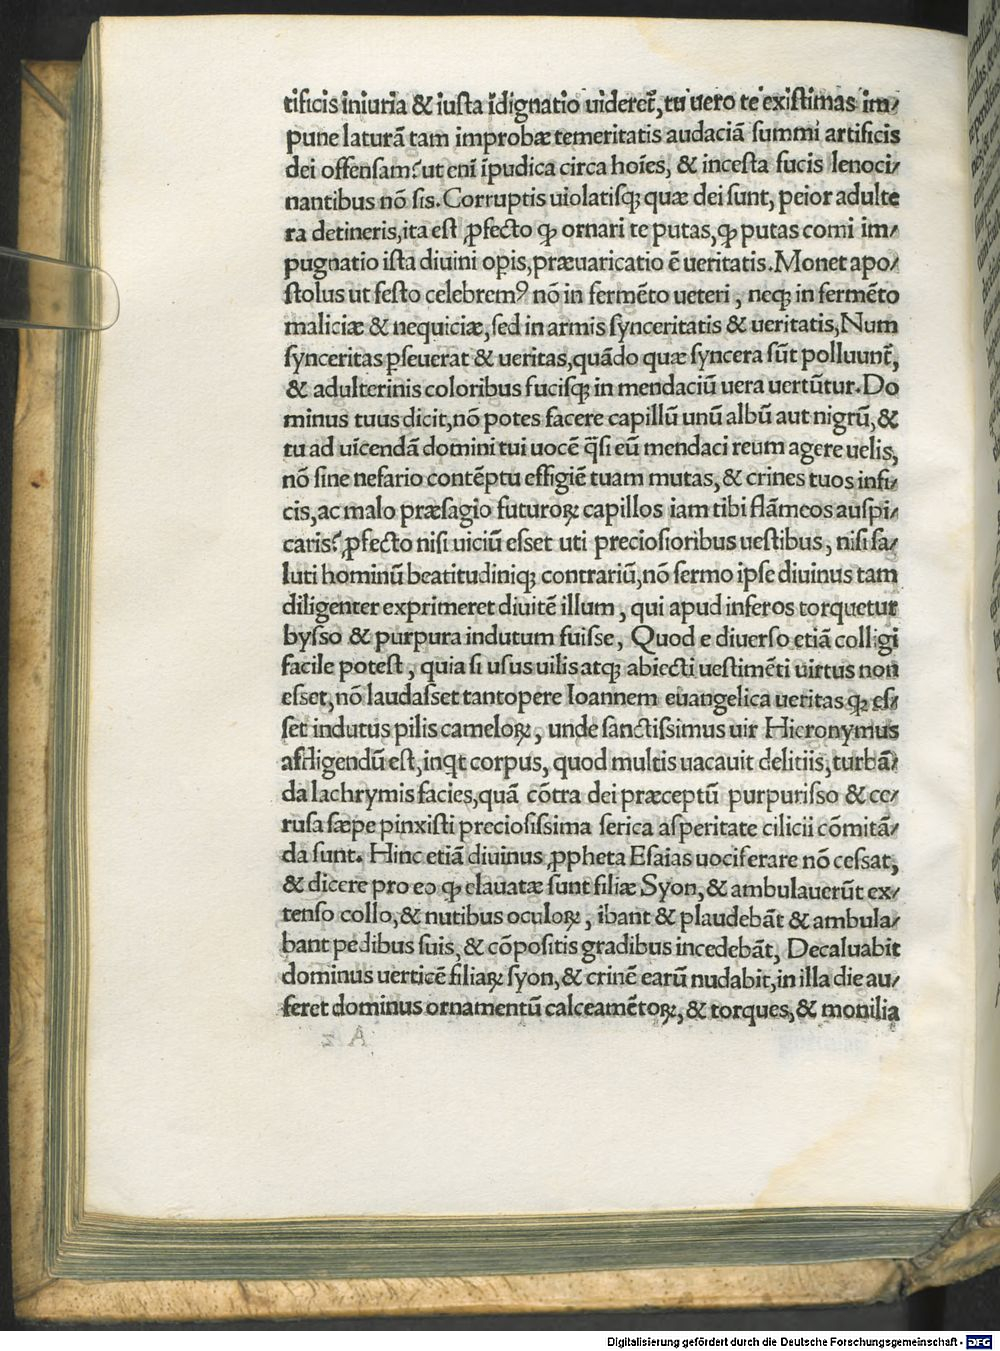 tificis iniuria & iusta īdignatio uideret᷑, tu uero te existimas im/
pune laturā tam improbæ temeritatis audaciā summi artificis
dei offensam? ut enī īpudica circa hoīes, & incesta fucis lenoci/
nantibus nō sis. Corruptis uiolatisq; quæ dei sunt, peior adulte
ra detineris, ita est ꝓfecto ꝙ ornari te putas, ꝙ putas comi im/
pugnatio ista diuini opis, præuaricatio ē ueritatis. Monet apo/
stolus ut festo celebremꝰ nō in fermēto ueteri, neq; in fermēto
maliciæ & nequiciæ, sed in armis synceritatis & ueritatis, Num
synceritas ꝑseuerat & ueritas, quādo quæ syncera sūt polluunt᷑,
& adulterinis coloribus fucisq; in mendaciū uera uertūtur. Do
minus tuus dicit, nō potes facere capillū unū albū aut nigrū, &
tu ad uīcendā domini tui uocē q̄si eū mendaci reum agere uelis,
nō sine nefario contēptu effigiē tuam mutas, & crines tuos infi/
cis, ac malo præsagio futuroꝝ capillos iam tibi flāmeos auspi/
caris? ꝓfecto nisi uiciū esset uti preciosioribus uestibus, nisi sa/
luti hominū beatitudiniq; contrariū, nō sermo ipse diuinus tam
diligenter exprimeret diuitē illum, qui apud inferos torquetur
bysso & purpura indutum fuisse, Quod e diuerso etiā colligi
facile potest, quia si usus uilis atq; abiecti uestimēti uirtus non
esset, nō laudasset tantopere Ioannem euangelica ueritas ꝙ es/
set indutus pilis cameloꝝ, unde sanctissimus uir Hieronymus
affligendū est, inqt corpus, quod multis uacauit delitiis, turbā/
da lachrymis facies, quā cōtra dei præceptū purpurisso & ce/
rusa sæpe pinxisti preciosissima serica asperitate cilicii cōmitā/
da sunt. Hinc etiā diuinus ꝓpheta Esaias uociferare nō cessat,
& dicere pro eo ꝙ elauatæ sunt filiæ Syon, & ambulauerūt ex/
tenso collo, & nutibus oculoꝝ, ibant & plaudebāt & ambula/
bant pedibus suis, & cōpositis gradibus incedebāt, Decaluabit
dominus uerticē filiaꝝ syon, & crinē earū nudabit, in illa die au/
feret dominus ornamentū calceamētoꝝ, & torques, & monilia
Digitalisierung gefördert durch die Deutsche Forschungsgemeinschaft - DFG